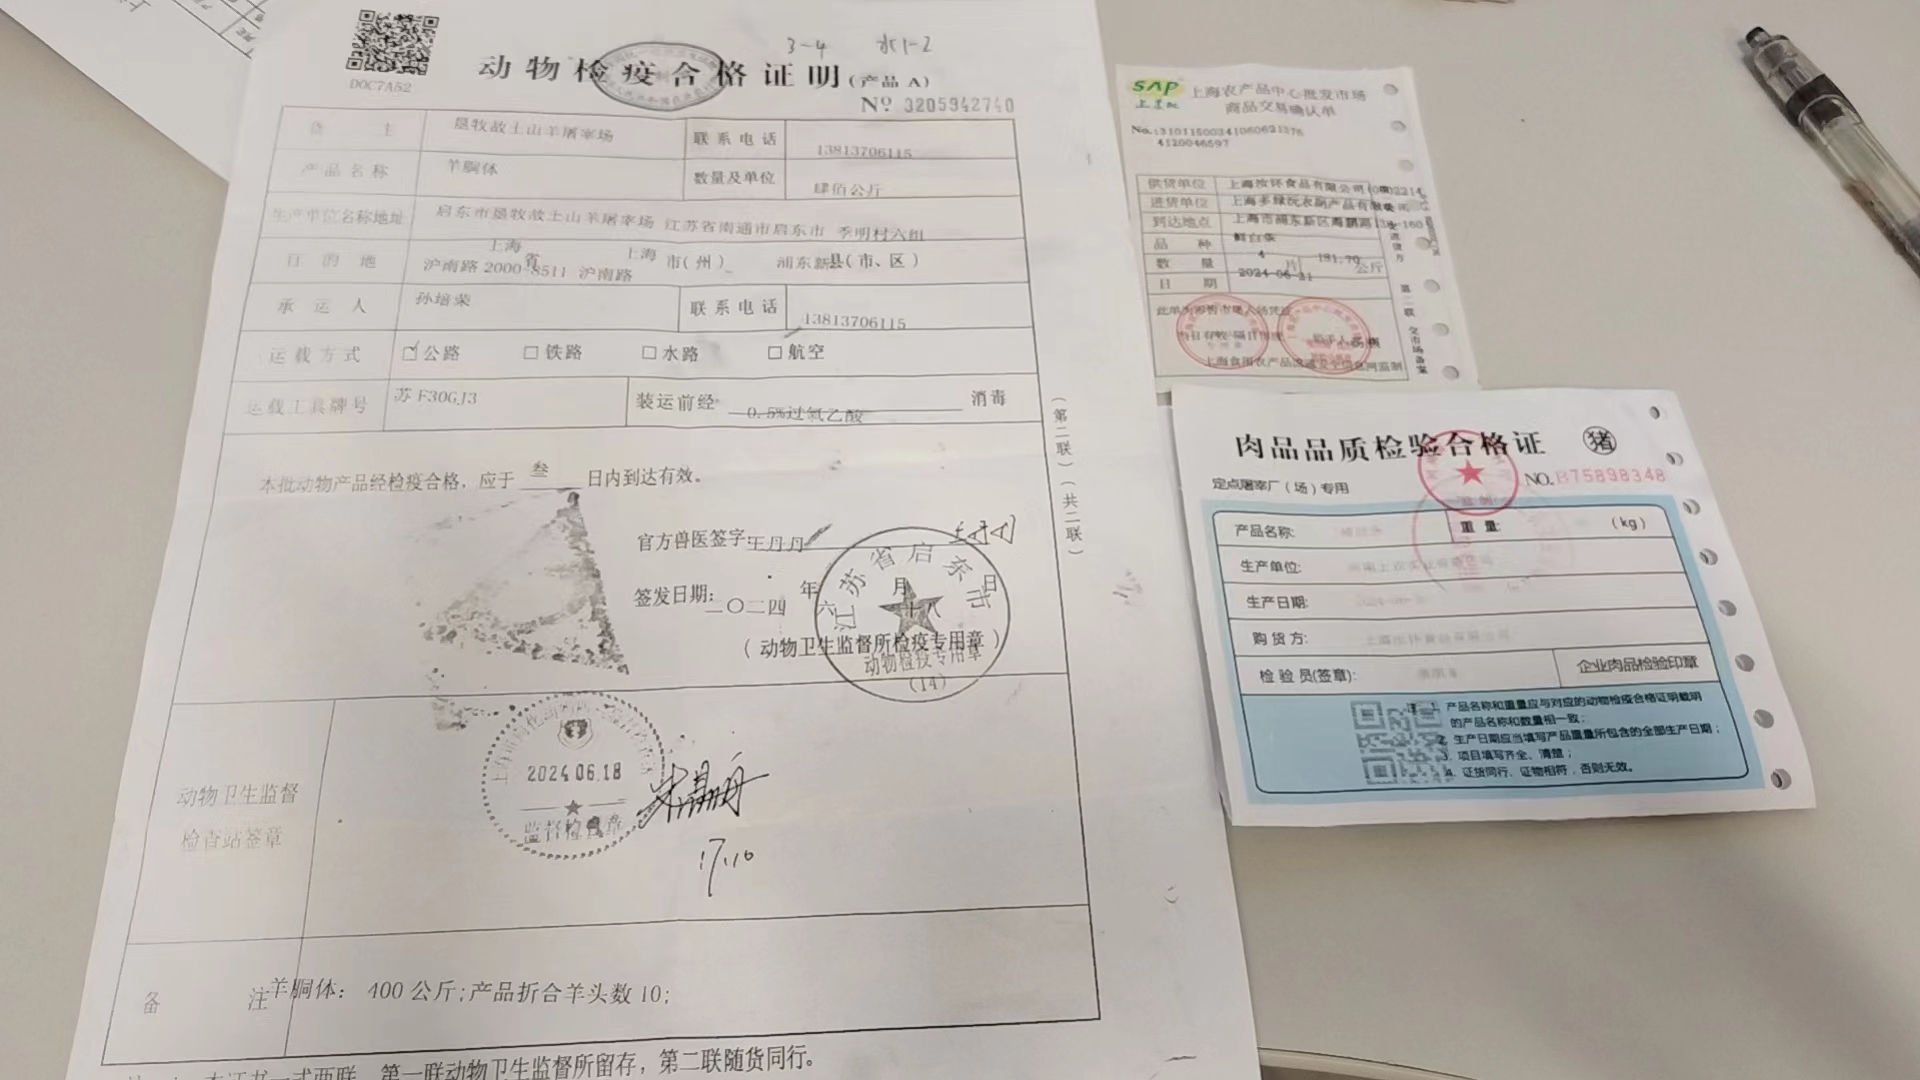 D0C7A52
3-4 水1-2
动物检疫合格证明(产品 A)
№ 3205942740
货主 垦牧故土山羊屠宰场 联系电话 13813706115
产品名称 羊胴体 数量及单位 肆佰公斤
生产单位名称地址 启东市垦牧故土山羊屠宰场 江苏省南通市启东市 季明村六组
目的地 上海省 上海市(州) 浦东新县(市、区)
沪南路 2000-8511 沪南路
承运人 孙培荣 联系电话 13813706115
运载方式 ☑公路 □铁路 □水路 □航空
运载工具牌号 苏F30GJ3 装运前经 0.5%过氧乙酸 消毒
本批动物产品经检疫合格,应于 叁 日内到达有效。
官方兽医签字:王丹丹
签发日期:二〇二四年六月十八日
(动物卫生监督所检疫专用章)
江苏省启东市
动物检疫专用章
(14)
(第二联)(共二联)
动物卫生监督
检查站签章
2024.06.18
监督检查章
17:10
备注 羊胴体: 400 公斤;产品折合羊头数 10;
本证书一式两联,第一联动物卫生监督所留存,第二联随货同行。
SAP 上海农产品中心批发市场
商品交易确认单
4120046597
供货单位 上海汝怀食品有限公司
进货单位 上海多绿沅农副产品有限
到达地点 上海市浦东新区
品种 鲜白条
数量 4 片 181.70 公斤
日期 2024-06-21
第二联 交市场备案
上海食用农产品流通安全信息网监制
肉品品质检验合格证 猪
定点屠宰厂(场)专用 NO.B75898348
产品名称: 重量: (kg)
生产单位:
生产日期:
购货方:
检验员(签章): 企业肉品检验印章
注:1、产品名称和重量应与对应的动物检疫合格证明载明
的产品名称和数量相一致;
2、生产日期应当填写产品重量所包含的全部生产日期;
3、项目填写齐全、清楚;
4、证货同行,证物相符,否则无效。